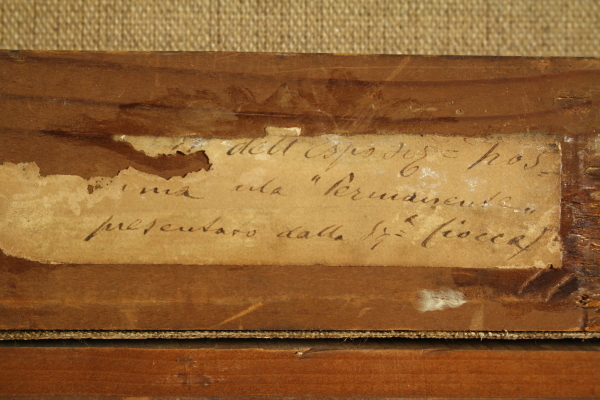 dell'esposiz= pos=
ma "Permanente„
presentato dalla Sg.ª Ciocca